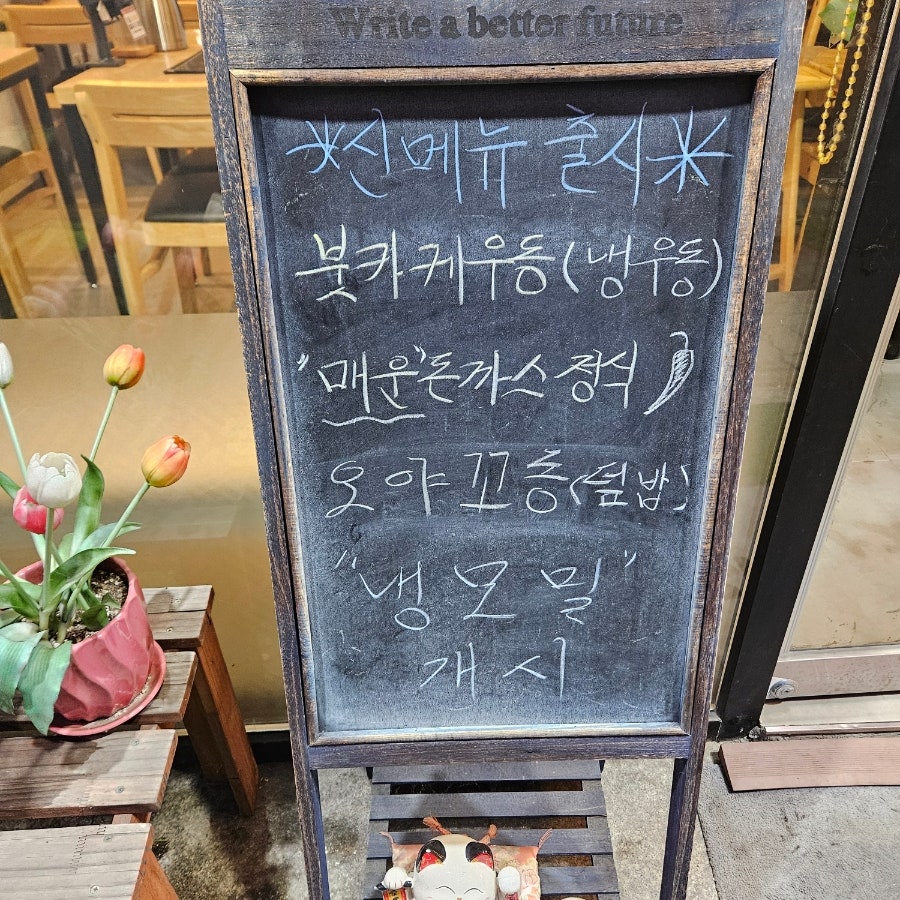 Write a better future
※신메뉴 출시※
붓카케우동(냉우동)
"매운"돈까스 정식
오야꼬동(덮밥)
"냉모밀"
개시